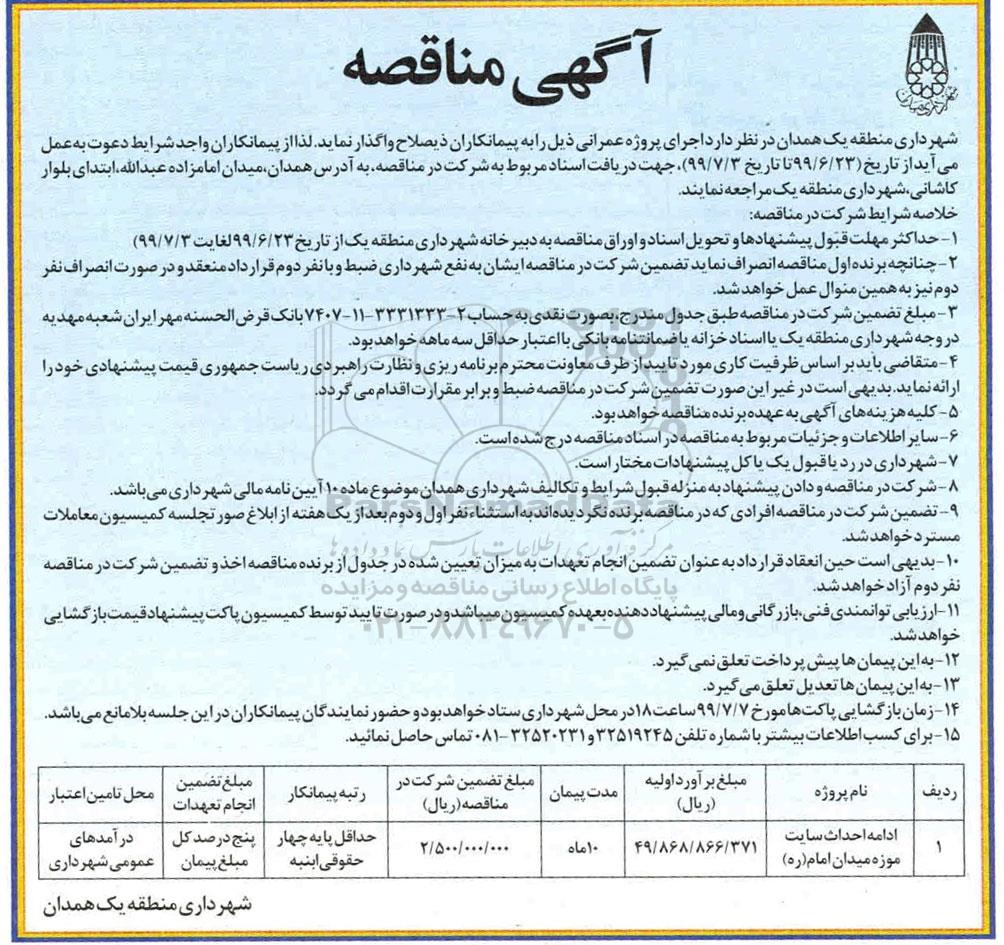 آگهی مناقصه
شهرداری همدان
شهرداری منطقه یک همدان در نظر دارد اجرای پروژه عمرانی ذیل را به پیمانکاران ذیصلاح واگذار نماید. لذا از پیمانکاران واجد شرایط دعوت به عمل
می آید از تاریخ (۹۹/۶/۲۳ تا تاریخ ۹۹/۷/۳)، جهت دریافت اسناد مربوط به شرکت در مناقصه، به آدرس همدان، میدان امامزاده عبدالله، ابتدای بلوار
کاشانی، شهرداری منطقه یک مراجعه نمایند.
خلاصه شرایط شرکت در مناقصه:
۱- حداکثر مهلت قبول پیشنهادها و تحویل اسناد و اوراق مناقصه به دبیرخانه شهرداری منطقه یک از تاریخ ۹۹/۶/۲۳ لغایت ۹۹/۷/۳)
۲- چنانچه برنده اول مناقصه انصراف نماید تضمین شرکت در مناقصه ایشان به نفع شهرداری ضبط و با نفر دوم قرارداد منعقد و در صورت انصراف نفر
دوم نیز به همین منوال عمل خواهد شد.
۳- مبلغ تضمین شرکت در مناقصه طبق جدول مندرج، بصورت نقدی به حساب ۲-۳۳۳۱۳۳۳-۱۱-۷۴۰۷ بانک قرض الحسنه مهر ایران شعبه مهدیه
در وجه شهرداری منطقه یک یا اسناد خزانه یا ضمانتنامه بانکی با اعتبار حداقل سه ماهه خواهد بود.
۴- متقاضی باید بر اساس ظرفیت کاری مورد تایید از طرف معاونت محترم برنامه ریزی و نظارت راهبردی ریاست جمهوری قیمت پیشنهادی خود را
ارائه نماید. بدیهی است در غیر این صورت تضمین شرکت در مناقصه ضبط و برابر مقرارت اقدام می گردد.
۵- کلیه هزینه های آگهی به عهده برنده مناقصه خواهد بود.
۶- سایر اطلاعات و جزئیات مربوط به مناقصه در اسناد مناقصه درج شده است.
۷- شهرداری در رد یا قبول یک یا کل پیشنهادات مختار است.
۸- شرکت در مناقصه و دادن پیشنهاد به منزله قبول شرایط و تکالیف شهرداری همدان موضوع ماده ۱۰ آیین نامه مالی شهرداری می باشد.
ParsNamadData
۹- تضمین شرکت در مناقصه افرادی که در مناقصه برنده نگردیده اند به استثناء نفر اول و دوم بعد از یک هفته از ابلاغ صورتجلسه کمیسیون معاملات
مسترد خواهد شد.
مرکز فرآوری اطلاعات پارس نماد داده ها
۱۰- بدیهی است حین انعقاد قرارداد به عنوان تضمین انجام تعهدات به میزان تعیین شده در جدول از برنده مناقصه اخذ و تضمین شرکت در مناقصه
نفر دوم آزاد خواهد شد.
پایگاه اطلاع رسانی مناقصه و مزایده
۱۱- ارزیابی توانمندی فنی، بازرگانی و مالی پیشنهاد دهنده بعهده کمیسیون میباشد و در صورت تایید توسط کمیسیون پاکت پیشنهاد قیمت بازگشایی
خواهد شد.
۰۲۱-۸۸۳۴۹۶۷۰-۵
۱۲- به این پیمان ها پیش پرداخت تعلق نمی گیرد.
۱۳- به این پیمان ها تعدیل تعلق می گیرد.
۱۴- زمان بازگشایی پاکت ها مورخ ۹۹/۷/۷ ساعت ۱۸ در محل شهرداری ستاد خواهد بود و حضور نمایندگان پیمانکاران در این جلسه بلامانع می باشد.
۱۵- برای کسب اطلاعات بیشتر با شماره تلفن ۳۲۵۱۹۲۴۵ و ۳۲۵۲۰۲۳۱-۰۸۱ تماس حاصل نمائید.
ردیف | نام پروژه | مبلغ برآورد اولیه (ریال) | مدت پیمان | مبلغ تضمین شرکت در مناقصه (ریال) | رتبه پیمانکار | مبلغ تضمین انجام تعهدات | محل تامین اعتبار
۱ | ادامه احداث سایت موزه میدان امام (ره) | ۴۹/۸۶۸/۸۶۶/۳۷۱ | ۱۰ ماه | ۲/۵۰۰/۰۰۰/۰۰۰ | حداقل پایه چهار حقوقی ابنیه | پنج درصد کل مبلغ پیمان | درآمدهای عمومی شهرداری
شهرداری منطقه یک همدان